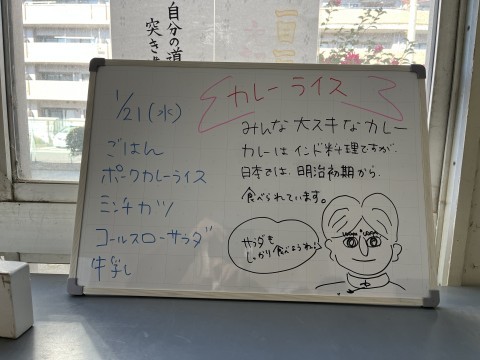 自分の道
突き
カレーライス
1/21(水)
ごはん
ポークカレーライス
ミンチカツ
コールスローサラダ
牛乳
みんな大スキなカレー
カレーはインド料理ですが、
日本では、明治初期から
食べられています。
サラダも
しっかり食べようね。